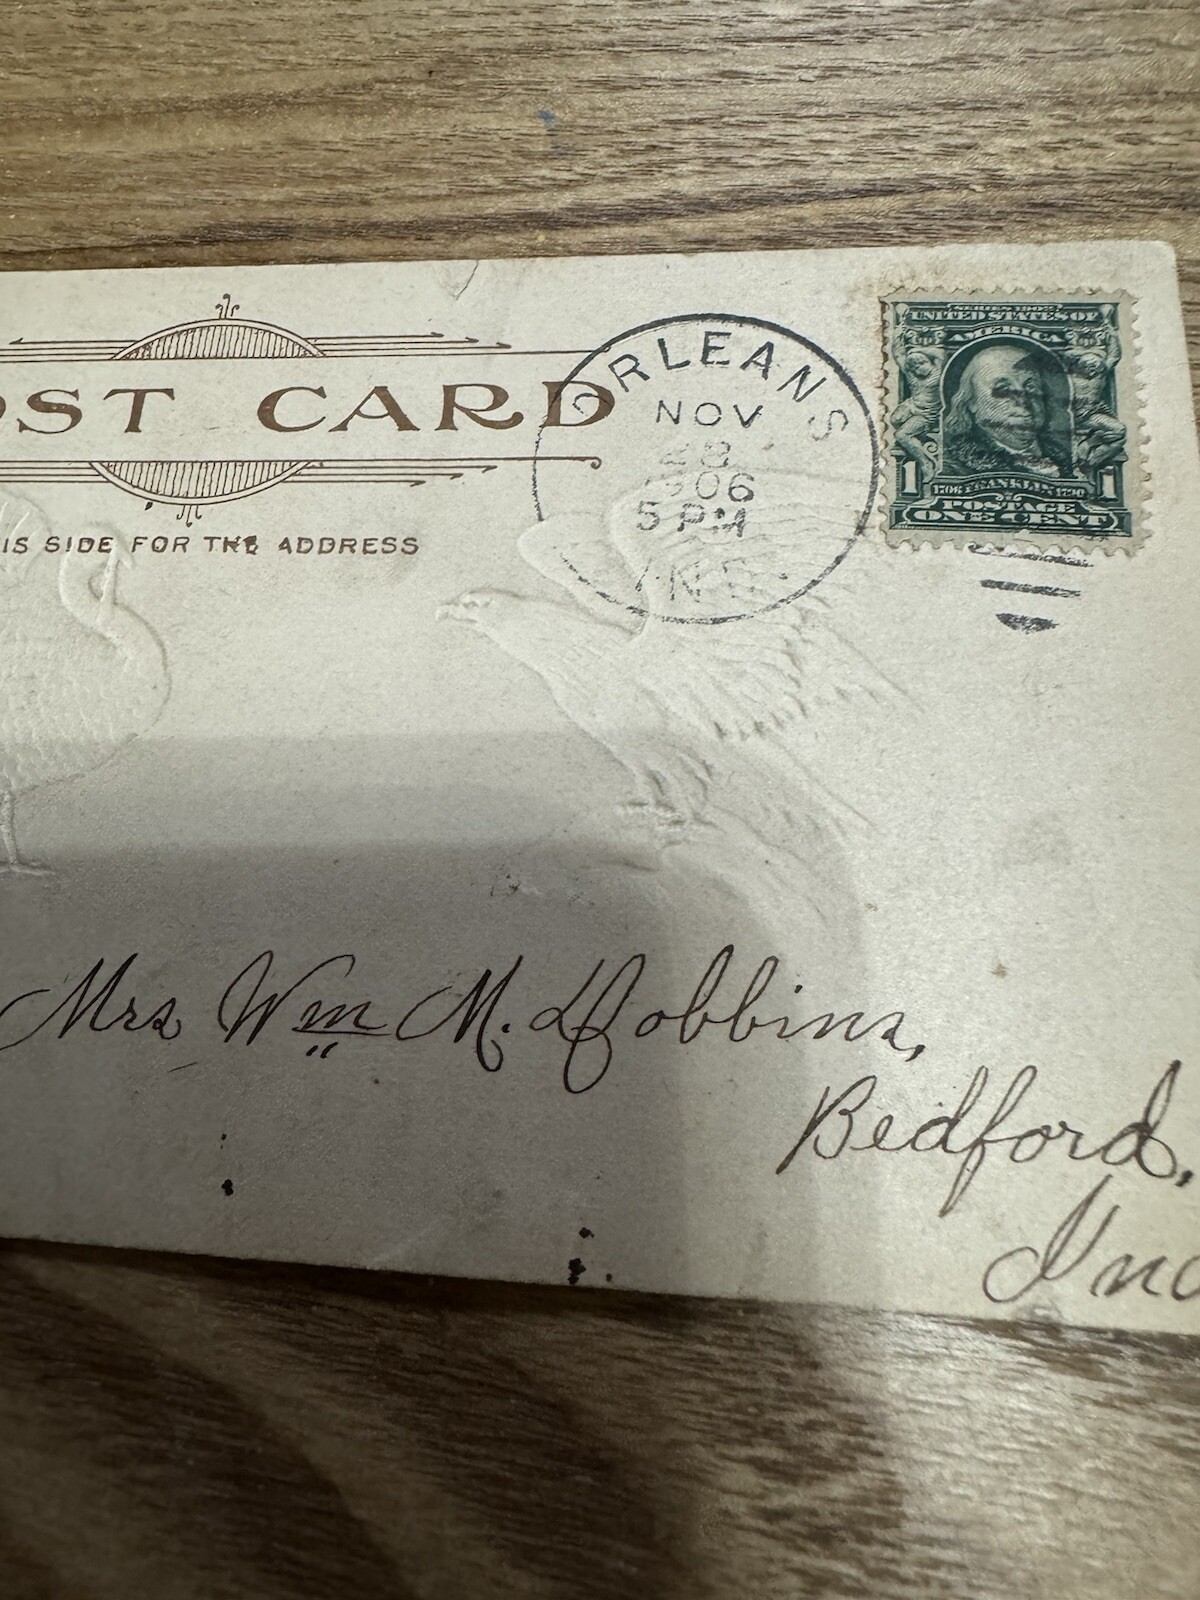 OST CARD
IS SIDE FOR THE ADDRESS
ORLEANS
NOV
28
1906
5 PM
IND.
SERIES 1902
UNITED STATES OF
AMERICA
1 1706 FRANKLIN 1790 1
POSTAGE
ONE CENT
Mrs Wm M. Dobbins,
Bedford,
Ind